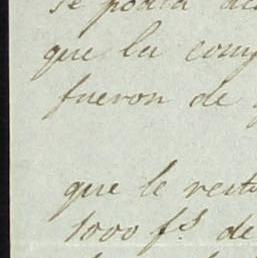 se podia
que la com
fueron de
que le rest
1000 f.s de